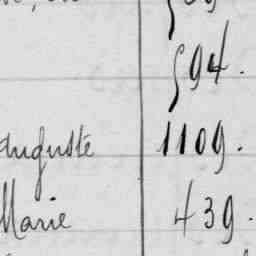 594.
Auguste 1109.
Marie 439.